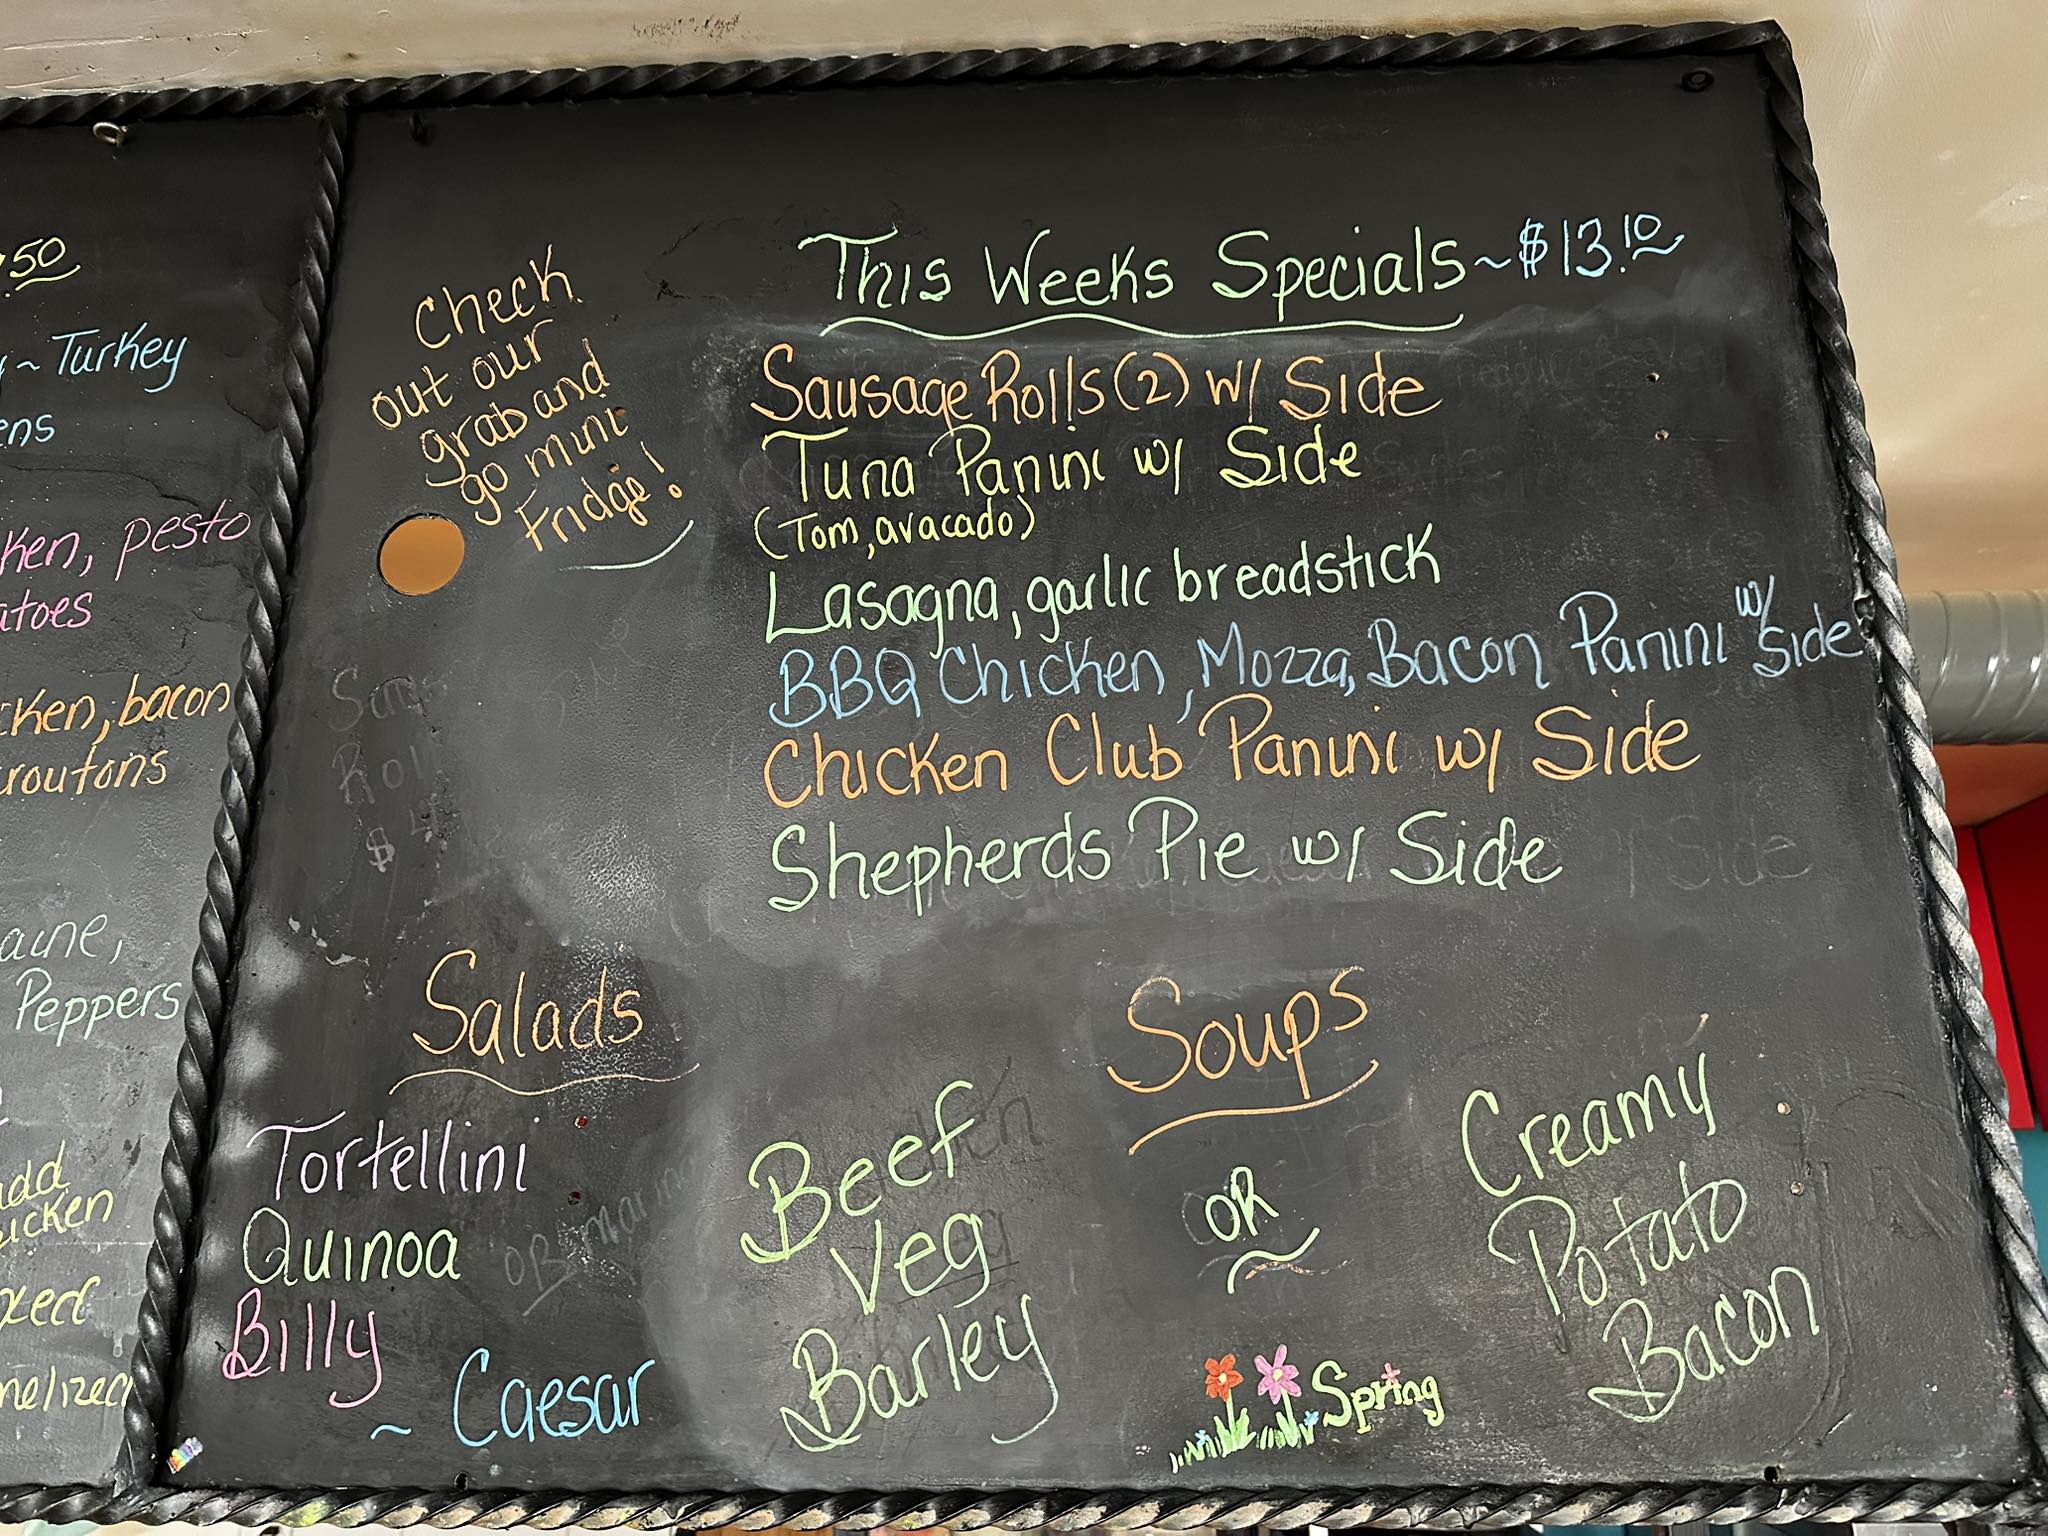 .50
~ Turkey
pesto
bacon
Peppers
add
Check
out our
grab and
go mini
Fridge!
This Weeks Specials ~ $13.10
Sausage Rolls (2) w/ Side
Tuna Panini w/ Side
(Tom, avacado)
Lasagna, garlic breadstick
BBQ Chicken, Mozza, Bacon Panini w/ Side
Chicken Club Panini w/ Side
Shepherds Pie w/ Side
Salads
Tortellini
Quinoa
Billy
~ Caesar
Soups
Beef
Veg
Barley
OR
Creamy
Potato
Bacon
Spring